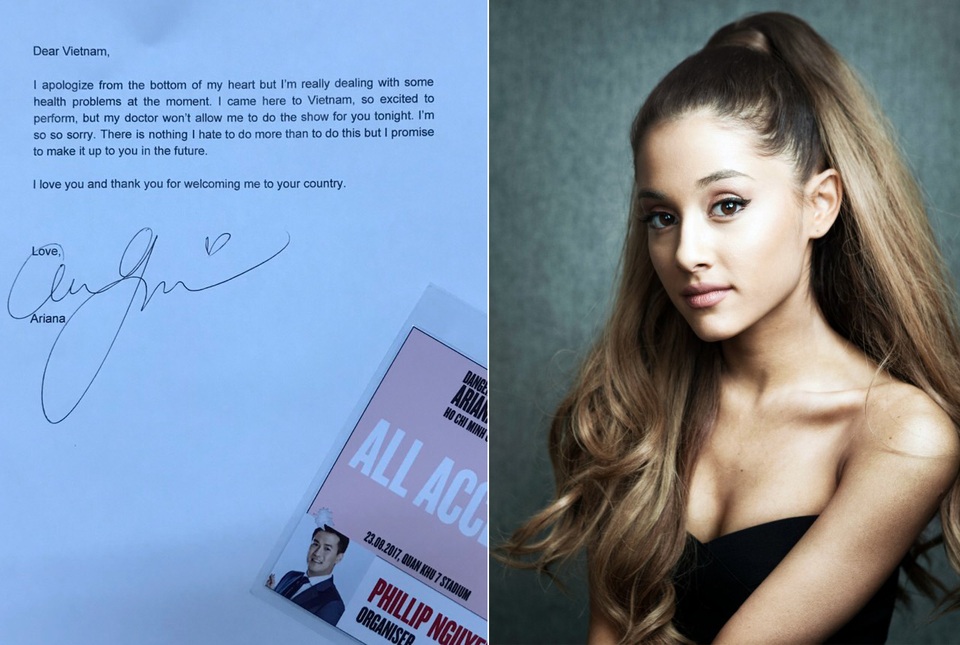 Dear Vietnam,
I apologize from the bottom of my heart but I'm really dealing with some
health problems at the moment. I came here to Vietnam, so excited to
perform, but my doctor won't allow me to do the show for you tonight. I'm
so so sorry. There is nothing I hate to do more than to do this but I promise
to make it up to you in the future.
I love you and thank you for welcoming me to your country.
Love,
Ariana
HO CHI MINH
ALL
23.08.2017, QUAN KHU 7 STADIUM
PHILLIP
ORGANISER